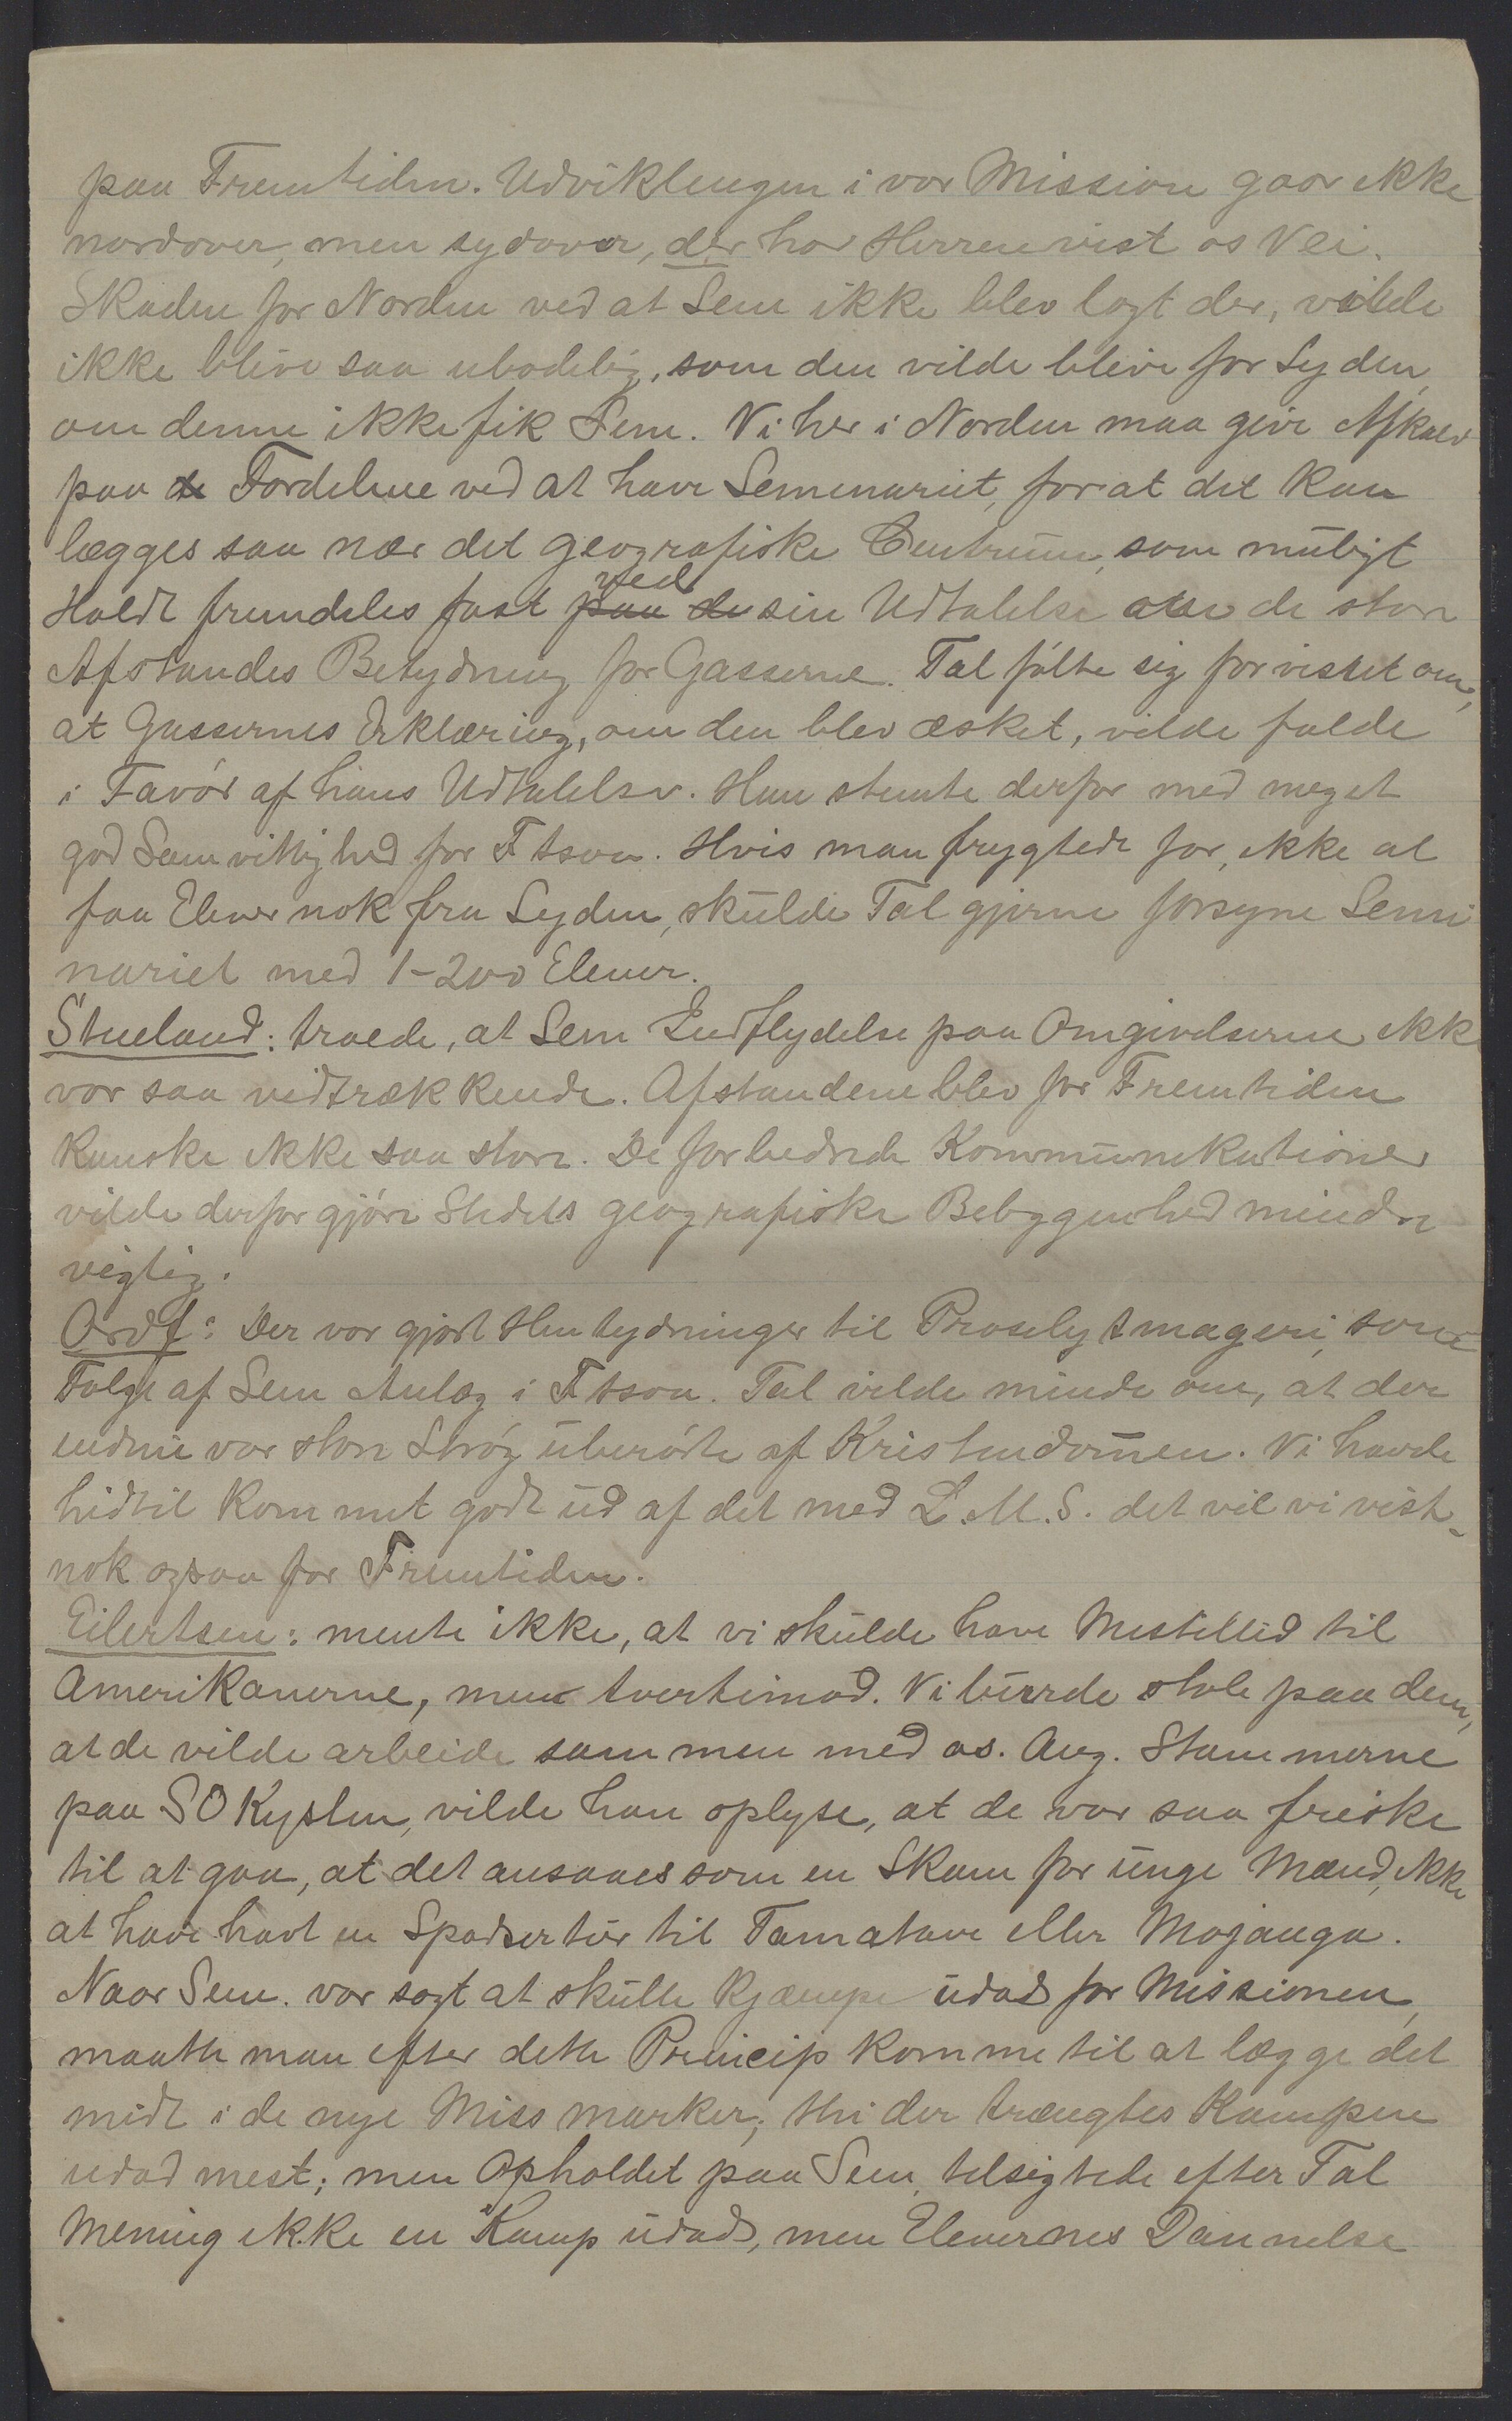 paa Fremtiden. Udviklingen i vor Mission gaar ikke
nordover, men sydover, der har Herren vist os Vei.
Skaden for Norden ved at Sem ikke blev lagt der, vilde
ikke blive saa ubodelig, som den vilde blive for Syden,
om denne ikke fik Sem. Vi her i Norden maa give Afkald
paa de Fordelene ved at have Seminariet, for at det kan
lægges saa nær det geografiske Centrum, som muligt
Holdt fremdeles fast paa de ved sin Udtalelse om de store
Afstandes Betydning for Gasserne. Tal følte sig forvisset om,
at Gassernes Erklæring, om den blev æsket, vilde falde
i Favør af hans Udtalelser. Han stemte derfor med meget
god Samvittighed for Ftsoa. Hvis man frygtede for, ikke at
faa Elever nok fra Syden, skulde Tal gjerne forsyne Semi
nariet med 1-200 Elever.
Stueland: troede, at Sem Indflydelse paa Omgivelserne ikke
var saa vidtrækkende. Afstandene blev for Fremtiden
kanske ikke saa store. De forbedrede Kommunikationer
vilde derfor gjøre Stedets geografiske Beliggenhed mindre
vigtig.
Ordf: Der var gjort Hentydninger til Proselytmageri, som
Følge af Sem Anlæg i Ftsoa. Tal vilde minde om, at der
endnu var store Strøg uberørte af Kristendommen. Vi havde
hidtil kommet godt ud af det med L.M.S. det vil vi vist-
nok ogsaa for Fremtiden.
Eilertsen: mente ikke, at vi skulde have Mistillid til
Amerikanerne, men tvertimod. Vi burde stole paa dem,
at de vilde arbeide sammen med os. Ang. Stammerne
paa SOKysten, vilde han oplyse, at de var saa friske
til at gaa, at det ansaaes som en Skam for unge Mænd, ikke
at have havt en Spadsertur til Tamatave eller Mojanga.
Naar Sem. var sagt at skulle kjæmpe udad for Missionen,
maatte man efter dette Princip komme til at lægge det
midt i de nye Missmarker; thi der trængtes Kampen
udad mest; men Opholdet paa Sem. tilsigtede efter Tal
Mening ikke en Kamp udad, men Elevernes Dannelse